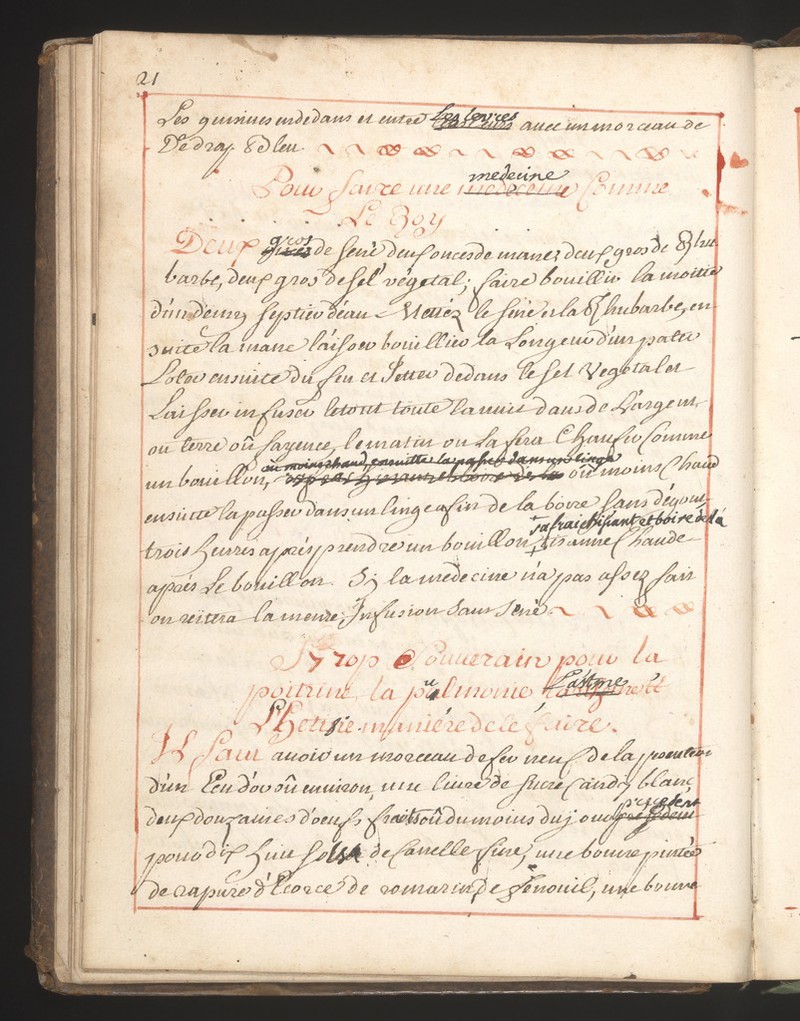 21
Les gencives endedans et entre les levres avec un morceau de
De drap Bleu.
Pour faire une medecine Comme
Le Roy
Deux gros de sené deux onces de manez deux gros de Rhu
barbe, deux gros de sel végétal; faire bouillir la moitié
d'un demy septier déau Mettéz le sené et la Rhubarbe, en
suite la mane láisser bouillier la Longeur d'un pater
L'oter ensuite du feu et Jetter dedans le sel Vegetal et
Laisser infuser letout toute la nuit dans de L'argent
ou terre oû fayence, le matin on La fera Chaufer Comme
un bouillon, oû moins chaud, ensuitte la passer dans un linge oû moins Chaud
ensuitte la passer dans un linge afin de la boire sans dégout
trois heures aprés prendre un bouillon rafraichisant et boire de la tisanne Chaude
aprés Le bouillon. Sy la medecine n'a pas assez fait
on reitera la meme Infusion Sans Sené
Syrop Souverain pour la
poitrine, la pulmonie Lastme et
L'Hetisie. maniére de le faire.
Il faut avoir un morceau de fer neuf de la pesenteur
d'un Ecu d'or oû environ, une livre de sucre Candy blanc
deux douzaines d'oeufs fraits oû du moins du jour precedent
pour dix huit sols de Canelle fine, une bonne pintée
de rapure d'Ecorce de romarin, de Fenouil, une bonne